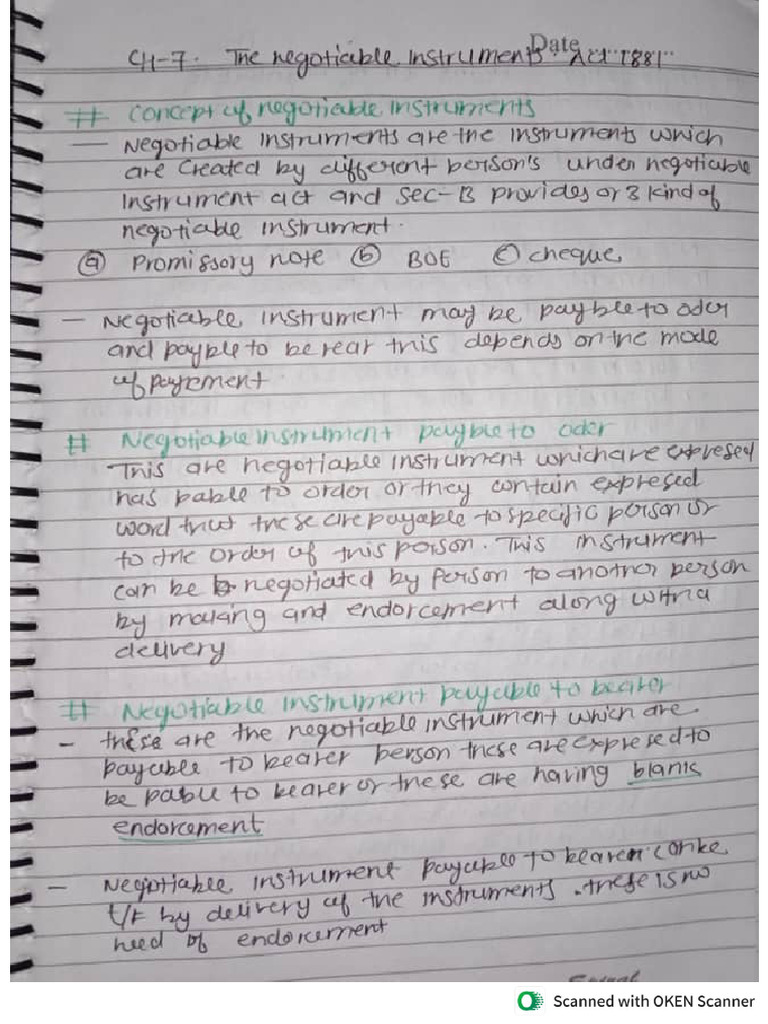 Date
CH-7. The negotiable instruments Act 1881
# concept of negotiable instruments
— Negotiable instruments are the instruments which
are created by different berson's under negotiable
Instrument act and sec-13 provides or 3 kind of
negotiable instrument.
ⓐ Promissory note ⓑ BOE ⓒ cheque
— Negotiable instrument may be payble to oder
and payble to be rear this depends on the mode
of payement
# Negotiable instrument payble to oder
This are negotiable instrument which are expresed
has pable to order or they contain expresed
word that these are payable to specific person or
to the order of this person. This instrument
can be negotiated by person to another person
by making and endorcement along with a
delivery
# Negotiable instrument payable to bearer
- these are the negotiable instrument which are
payable to bearer person these are expresed to
be pable to bearer or these are having blank
endorcement
— Negotiable instrument payable to bearer can be
t/f by delivery of the instruments. there is no
need of endorcement
Scanned with OKEN Scanner